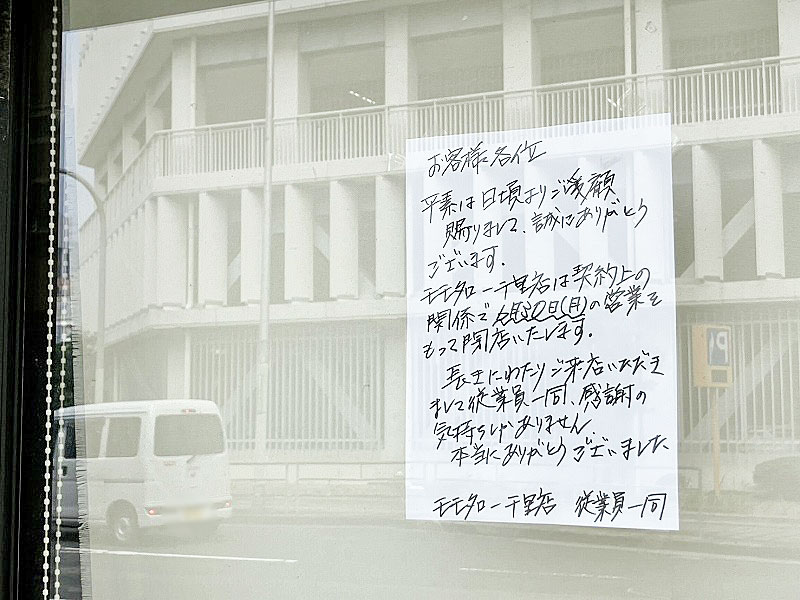 お客様各位
平素は日頃よりご愛顧
賜りまして、誠にありがとう
ございます。
モモタロー千里店は契約上の
関係で6月30日(月)の営業を
もって閉店いたします。
長きにわたりご来店いただき
まして従業員一同、感謝の
気持ちしかありません。
本当にありがとうございました
モモタロー千里店 従業員一同